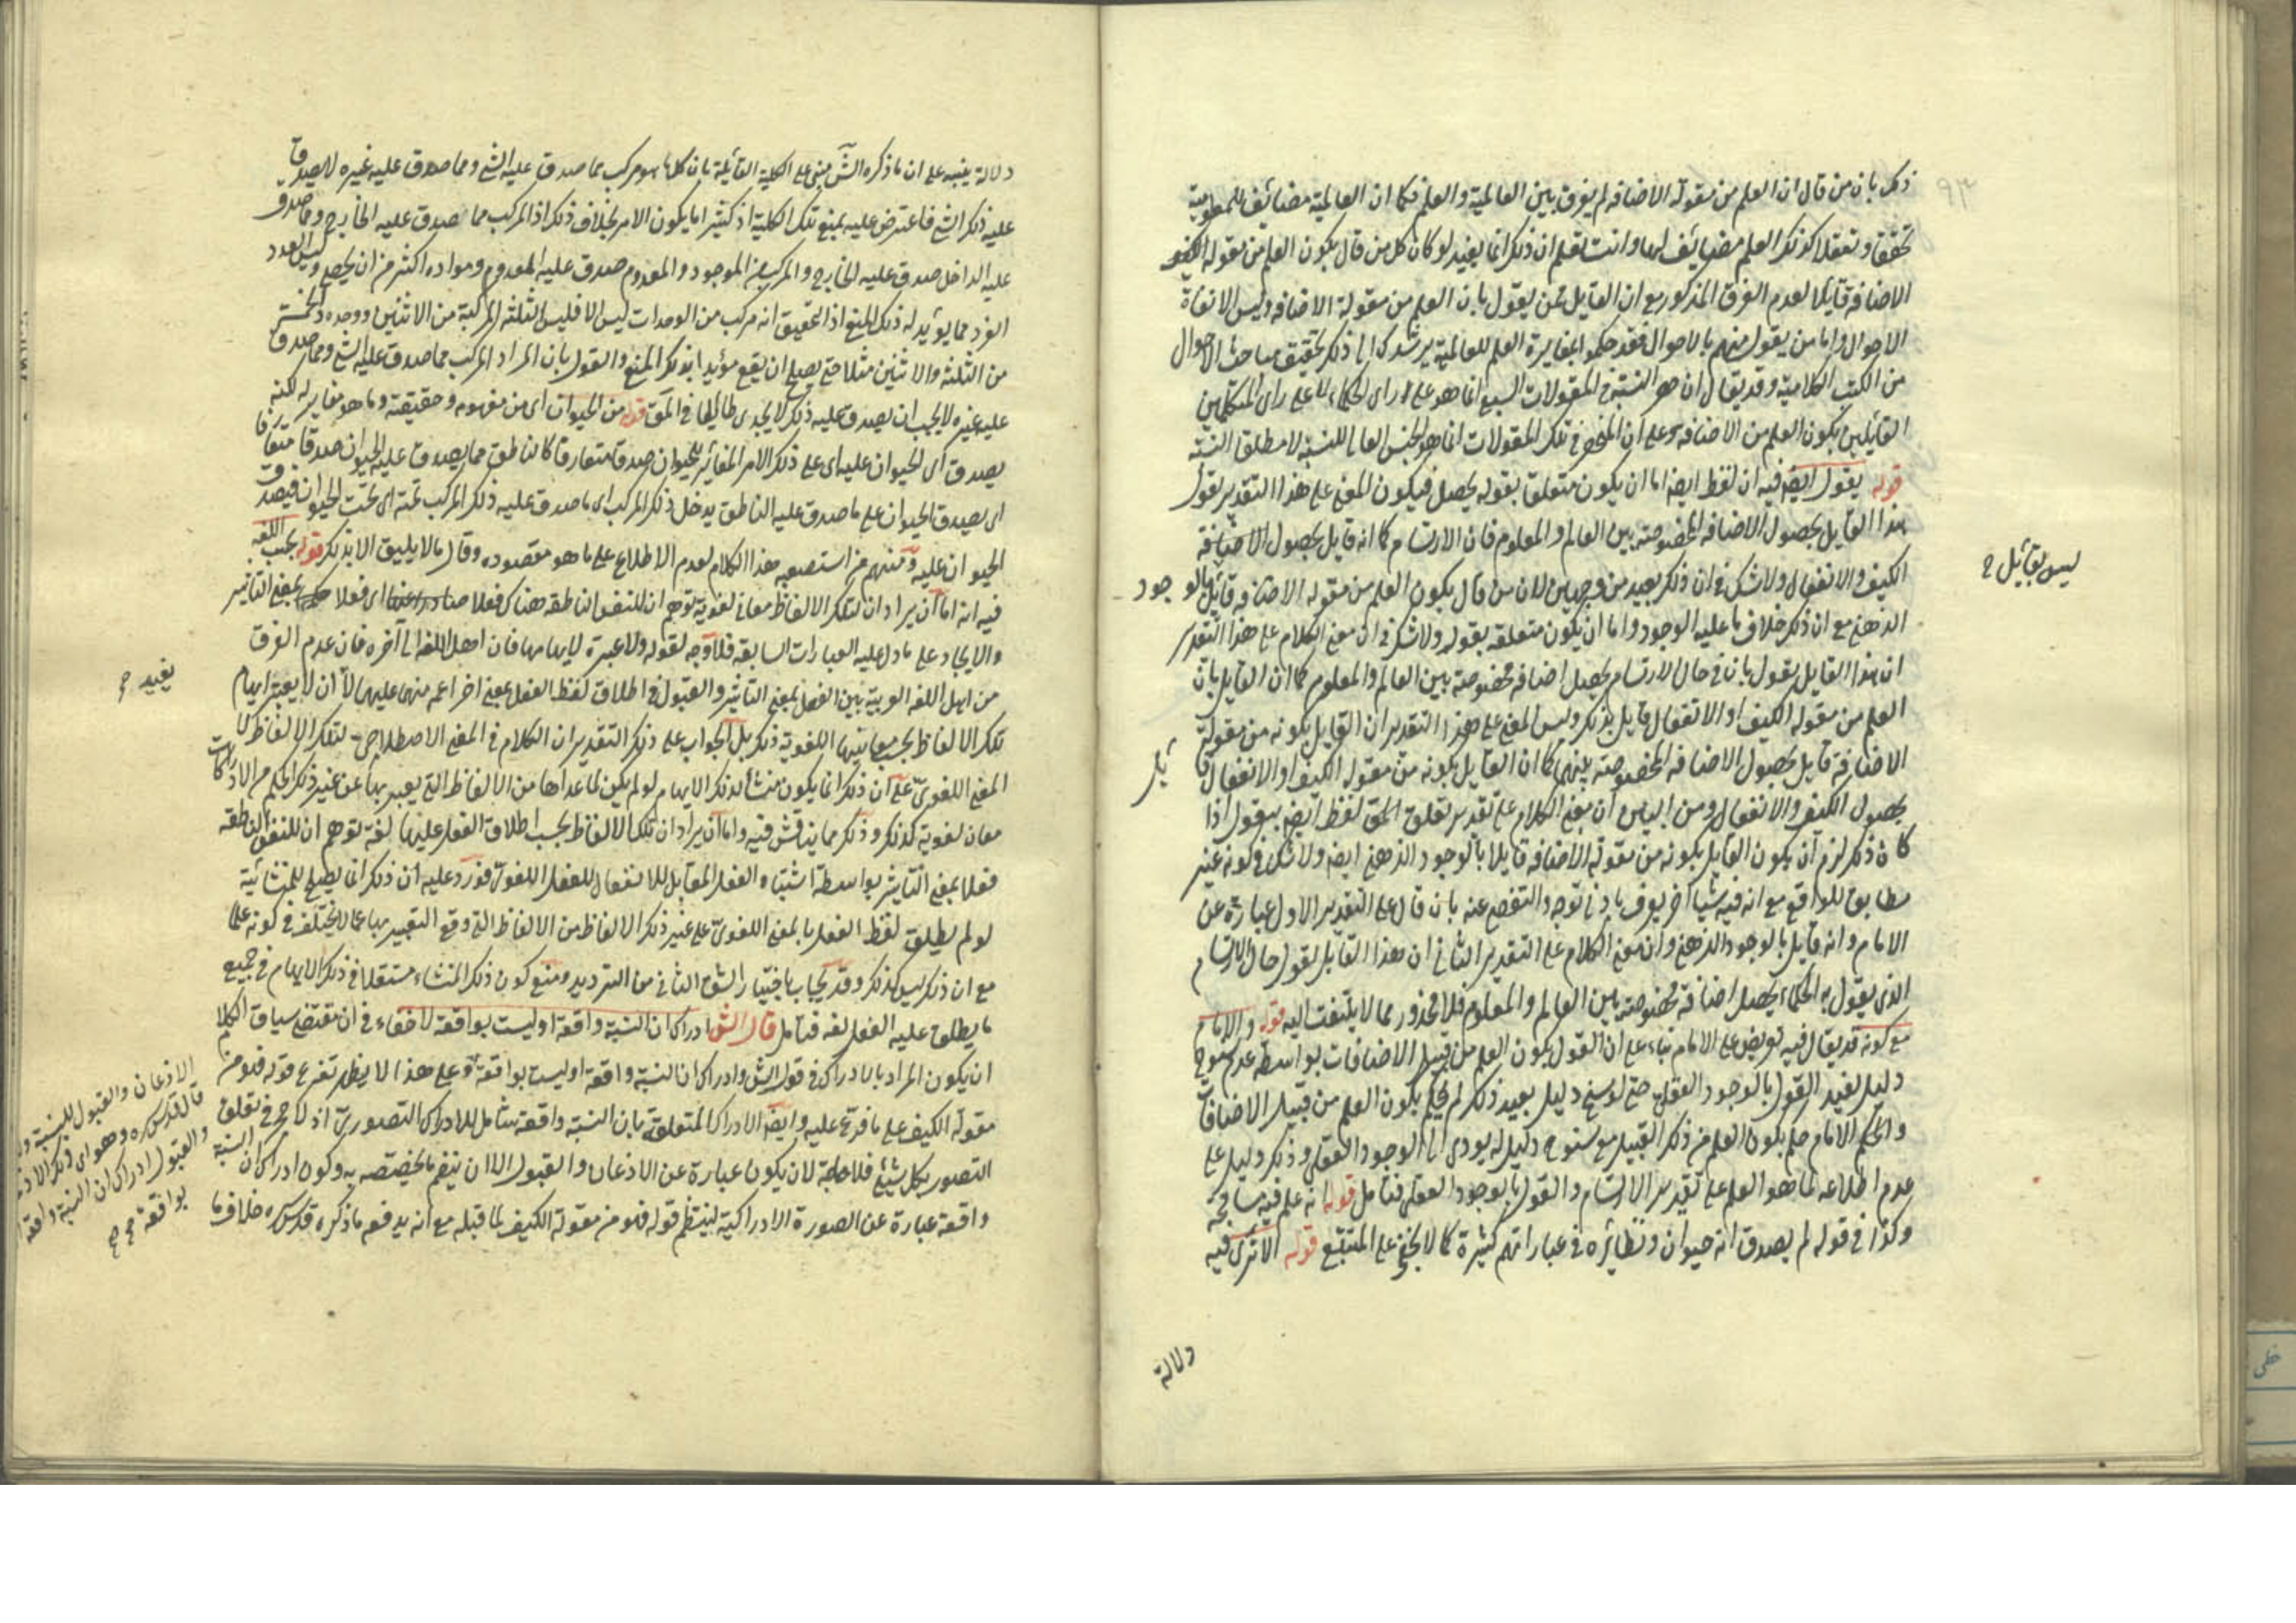 ذلك بان من قال ان العلم من مقولة الاضافه لم يفرق بين العالمية والعلم فكما ان العالمية مضائف للمعلومية
تحققا وتعقلا كذلك العلم مضايف لهما وانت تعلم ان ذلك انما يفيد لو كان كل من قال بكون العلم من مقوله
الاضافة قايلا لعدم الفرق المذكور مع ان القايل ممن يقول بان العلم من مقولة الاضافه وليس الا نفاة
الاحوال واما من يقول منهم بالاحوال فقد حكموا بمغايرة العلم للعالمية يرشدك الى ذلك تحقيق مباحث الاحوال
من الكتب الكلامية وقد يقال ان حصر النسبة في المقولات السبع انما هو على راى الحكماء لا على راى المتكلمين
القايلين بكون العلم من الاضافه وعلى ان المنحصر في تلك المقولات انما هو الجنس العالى للنسبة لا مطلق النسبة
قوله يقول ايضا فيه ان لفظ ايضا اما ان يكون متعلقا بقوله يحصل فيكون المعنى على هذا التقدير يقول
هذا القايل بحصول الاضافه المخصوصة بين العالم والمعلوم فان الارتسام كما انه قايل بحصول الاضافة
الكيف والانفعال ولا شك في ان ذلك بعيد من وجهين لان من قال بكون العلم من مقوله الاضافه قايل بالوجود
ليس بقائل ح
الذهني مع ان ذلك خلاف ما عليه الوجود واما ان يكون متعلقه بقوله ولا شك في ان معنى الكلام على هذا التقدير
ان هذا القايل يقول بان في حال الارتسام يحصل اضافه مخصوصة بين العالم والمعلوم كما ان القايل بان
العلم من مقوله الكيف او الانفعال قايل بذلك وليس المعنى على هذا التقدير ان القايل بكونه من مقولة
الاضافة قايل بحصول الاضافه المخصوصة بينهما كما ان القايل بكونه من مقوله الكيف او الانفعال قايل
بحصول الكيف والانفعال ومن البين ان معنى الكلام على تقدير تعلق لفظ ايضا بيقول اذا
كان ذلك لزم ان يكون القايل بكونه من مقولة الاضافه قايلا بالوجود الذهني ايضا ولا شك في كونه غير
مطابق للواقع مع انه فيه شيا آخر يعرف بادنى توجه والتفصي عنه بان قال على التقدير الاول عبارة عن
الامام وانه قايل بالوجود الذهني وان معنى الكلام على التقدير الثاني ان هذا القايل يقول حال الارتسام
الذى يقول به الحكماء يحصل اضافة مخصوصة بين العالم والمعلوم فلا محذور مما لا يلتفت اليه قوله والامام
مع كونه قد يقال فيه تعريض على الامام بناء على ان القول بكون العلم من قبيل الاضافات بواسطة عدم سنوح
دليل يفيد القول بالوجود العقلى حتى لو سنح دليل بعيد ذلك لم يحكم بكون العلم من قبيل الاضافات
والحكم الامام حكم بكون العلم من ذلك القبيل مع سنوح دليل له يودى الى الوجود العقلى وذلك دليل على
عدم اطلاعه لما هو العلم على تقدير الارتسام والقول بالوجود العقلى فتامل قوله انه علم فيه مسامحة
وكذا في قوله لم يصدق انه حيوان ونظائره في عباراتهم كثيرة كما لا يخفى على المتتبع قوله الا ترى فيه
دلالة
دلالة ينبه على ان ما ذكره الش مبنى على الكلية القائلة بان كلما هو مركب مما صدق عليه الشئ ومما صدق عليه غيره لا يصدق
عليه ذلك الشئ فاعترض عليه بمنع تلك الكلية اذ كثيرا ما يكون الامر بخلاف ذلك اذ المركب مما صدق عليه الخارج ومما صدق
عليه الداخل صدق عليه الخارج والمركب من الموجود والمعدوم صدق عليه المعدوم ومواده اكثر من ان يحصى وليس العدد
الفرد مما يؤيد له ذلك المنع اذ التحقيق انه مركب من الوحدات ليس الا فليس الثلثة المركبة من الاثنين ووحده والخمسة
من الثلثه والاثنين مثلا حتى يصلح ان يقع مؤيدا بذلك المنع والقول بان المراد المركب مما صدق عليه الشئ ومما صدق
عليه غيره لا يجب ان يصدق عليه ذلك لا يجدى طائلا في المق قوله من الحيوان اى من مفهومه وحقيقته وما هو مغاير له لكنه
يصدق اى الحيوان عليه اى على ذلك الامر المغائر للحيوان صدقا متعارفا كالناطق مما يصدق عليه الحيوان صدقا متعارفا
اى يصدق الحيوان على ما صدق عليه الناطق يدخل ذلك المركب اى ما صدق عليه ذلك المركب تحته اى تحت الحيوان فيصدق
الحيوان عليه ومنهم من استصعب هذا الكلام لعدم الاطلاع على ما هو مقصوده وقال ما لا يليق الا بذلك قوله بحسب اللغه
فيه انه اما ان يراد ان لتلك الالفاظ معانى لغوية توهم ان للنفس الناطقه هناك فعلا صادرا عنها اى فعلا بمعنى التاثير
والايجاد على ما دل عليه العبارات السابقه فلا وجه لقوله ولا عبرة لايهامها فان اهل اللغه الى آخره فان عدم الفرق
من اهل اللغه العربية بين الفعل بمعنى التاثير والقبول في اطلاق لفظ الفعل بمعنى اخر اعم منها عليهما لا ان لا يعتبر ايهام
يفيد ح
تلك الالفاظ بحسب معانيها اللغوية ذلك بل الجواب على ذلك التقدير ان الكلام في المعنى الاصطلاحى لتلك الالفاظ لا
المعنى اللغوى على ان ذلك انما يكون منشأ لذلك الايهام لو لم يكن لما عداها من الالفاظ التى يعبر بها عن غير ذلك الحكم من الادراكات
معان لغوية كذلك وذلك مما يناقش فيه واما ان يراد ان تلك الالفاظ بحسب اطلاق الفعل عليها لغة توهم ان للنفس الناطقه
فعلا بمعنى التاثير بواسطة اشتباه الفعل المقابل للانفعال للفعل اللغوى فورد عليه ان ذلك انما يصلح للمنشائية
لو لم يطلق لفظ الفعل بالمعنى اللغوى على غير ذلك الالفاظ من الالفاظ التى وقع التعبير بها عما لا يختلف في كونه علما
مع ان ذلك ليس كذلك وقد يجاب باختيار الشق الثانى من الترديد ومنع كون ذلك المنشاء مستقلا في ذلك الايهام في جميع
ما يطلق عليه الفعل لغه فتامل قال الش ادراك ان النسبة واقعة او ليست بواقعة لا خفاء في ان مقتضى سياق الكلام
ان يكون المراد بالادراك في قول الش وادراك ان النسبة واقعة او ليست بواقعة وعلى هذا لا يظهر تفرع قوله فهو من
مقولة الكيف على ما فرع عليه وايضا الادراك المتعلقة بان النسبة واقعة شامل للادراك التصورى اذ لا حجر في تعلق
التصور بكل شئ فلا حاجة لان يكون عبارة عن الاذعان والقبول الا ان ينضم ما يختصه به وكون ادراك ان النسبة
واقعة عبارة عن الصورة الادراكية لينتظم قوله فهو من مقولة الكيف لما قبله مع انه يدفعه ما ذكره قدس سره خلاف ما
الاذعان والقبول للنسبة
قال قدس سره وهو اى ذلك
والقبول ادراك ان النسبة واقعة
بواقعة صح